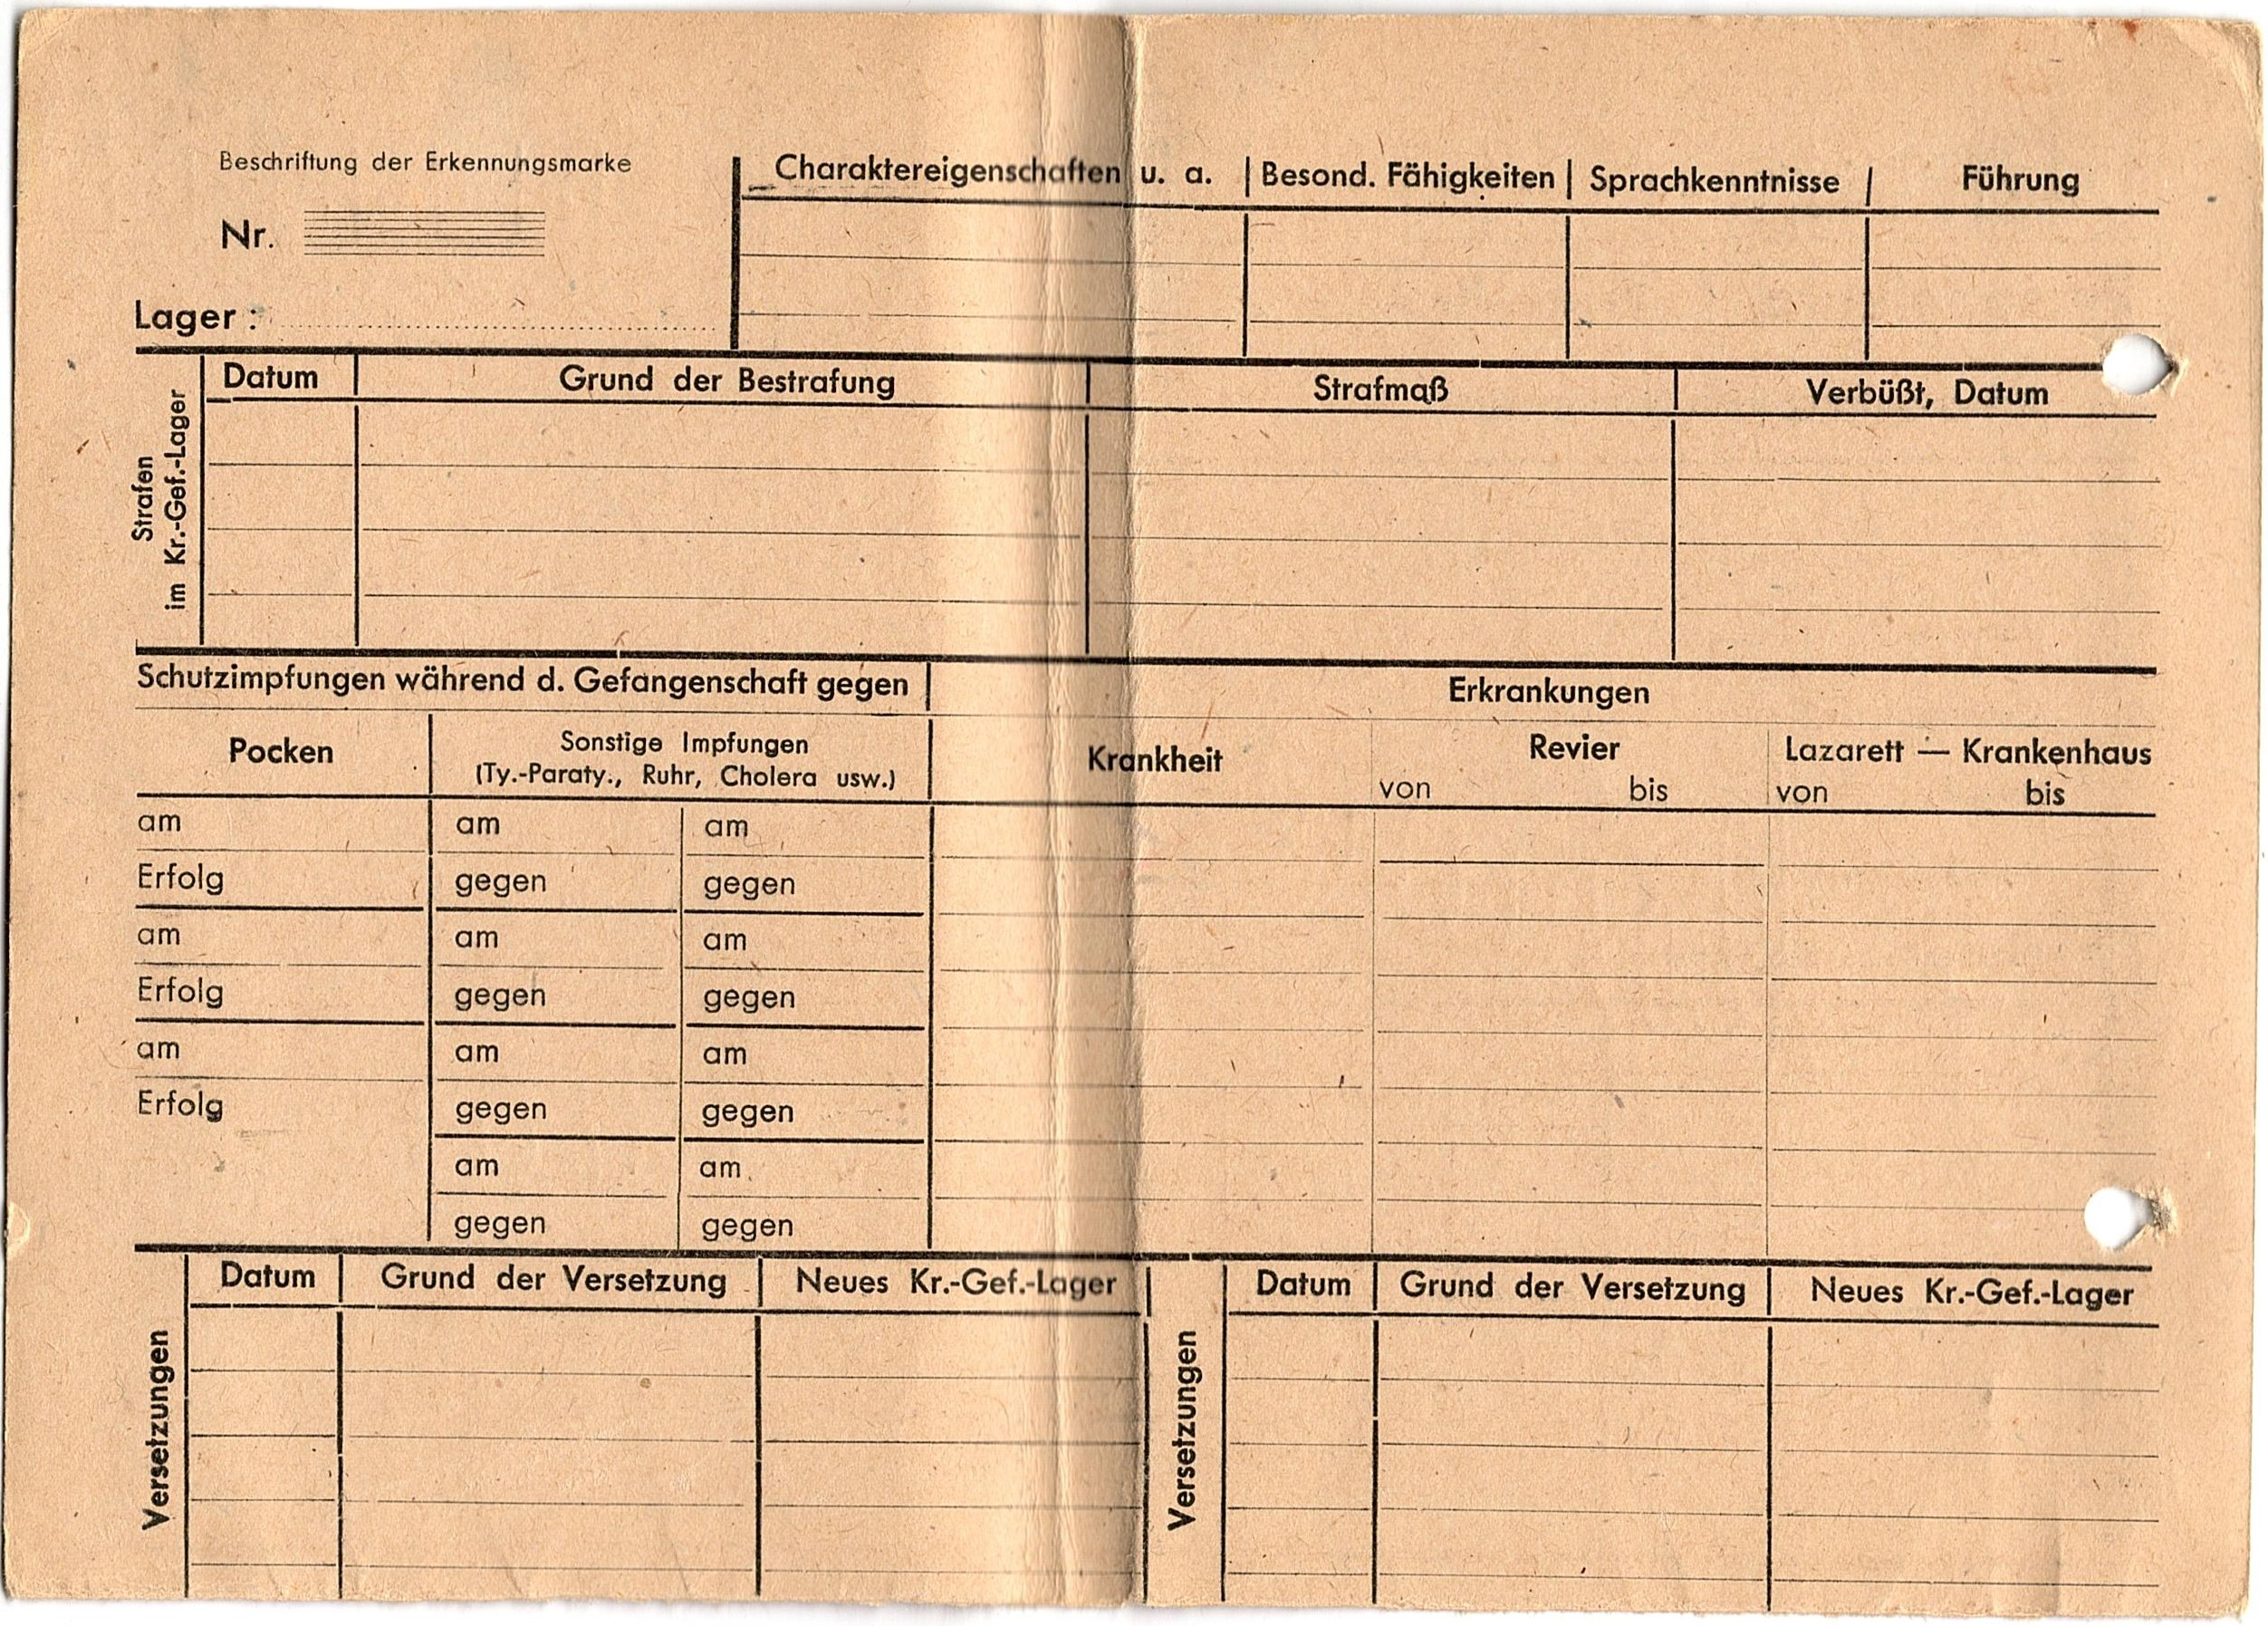 Beschriftung der Erkennungsmarke
Nr.
Lager :
Charaktereigenschaften u. a. Besond. Fähigkeiten Sprachkenntnisse Führung
Strafen
im Kr.-Gef.-Lager
Datum Grund der Bestrafung Strafmaß Verbüßt, Datum
Schutzimpfungen während d. Gefangenschaft gegen
Erkrankungen
Pocken
Sonstige Impfungen
(Ty.-Paraty., Ruhr, Cholera usw.)
Krankheit
Revier
von bis
Lazarett — Krankenhaus
von bis
am am am
Erfolg gegen gegen
am am am
Erfolg gegen gegen
am am am
Erfolg gegen gegen
am am
gegen gegen
Versetzungen
Datum Grund der Versetzung Neues Kr.-Gef.-Lager
Versetzungen
Datum Grund der Versetzung Neues Kr.-Gef.-Lager